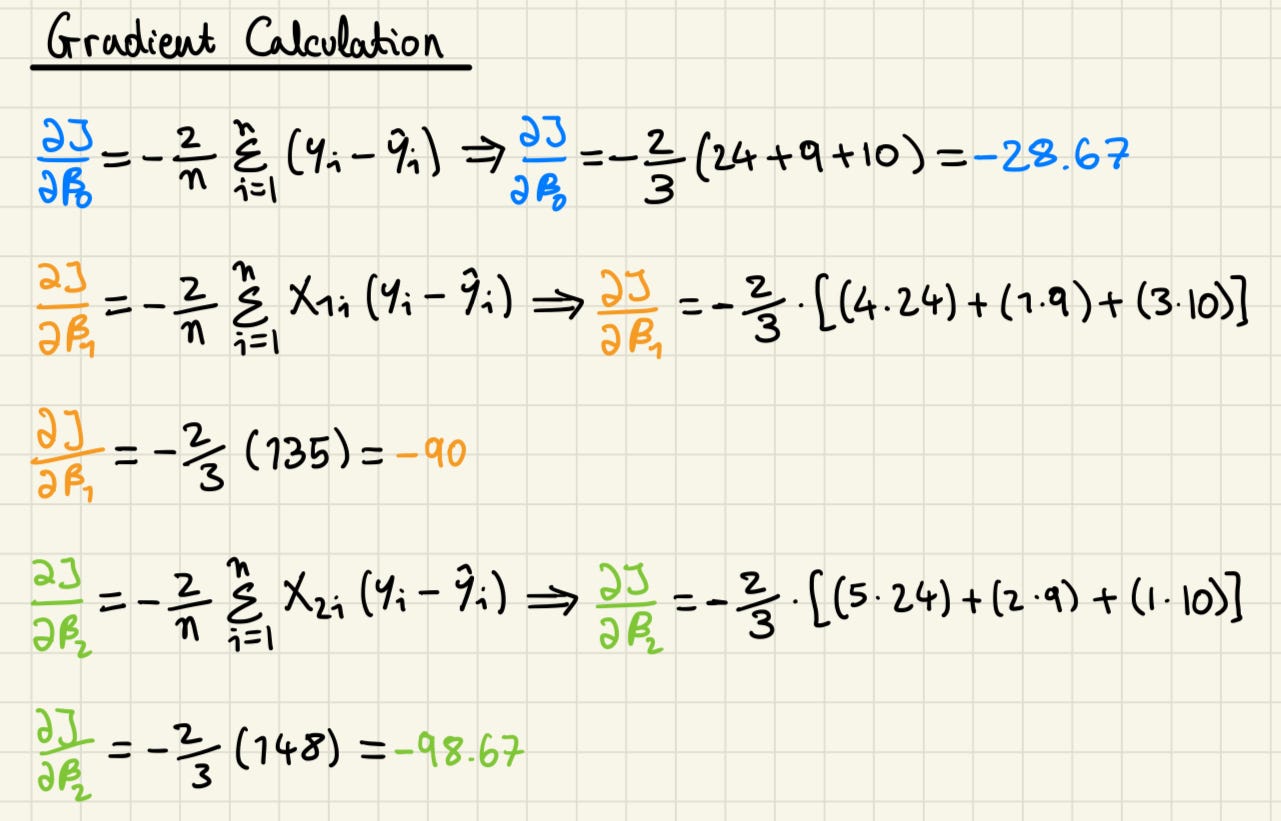 Gradient Calculation
∂J/∂β₀ = -2/n Σᵢ₌₁ⁿ (yᵢ - ŷᵢ) ⇒ ∂J/∂β₀ = -2/3 (24+9+10) = -28.67
∂J/∂β₁ = -2/n Σᵢ₌₁ⁿ X₁ᵢ (yᵢ - ŷᵢ) ⇒ ∂J/∂β₁ = -2/3 · [(4·24) + (1·9) + (3·10)]
∂J/∂β₁ = -2/3 (135) = -90
∂J/∂β₂ = -2/n Σᵢ₌₁ⁿ X₂ᵢ (yᵢ - ŷᵢ) ⇒ ∂J/∂β₂ = -2/3 · [(5·24) + (2·9) + (1·10)]
∂J/∂β₂ = -2/3 (148) = -98.67